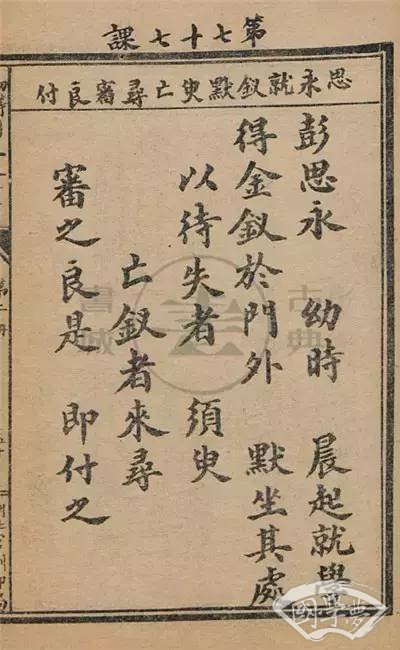 第七十七課
思永就釵默臾亡尋審良付
彭思永 幼時 晨起就學
得金釵於門外 默坐其處
以待失者 須臾
亡釵者來尋
審之良是 即付之
第二册
古典書城
國學夢